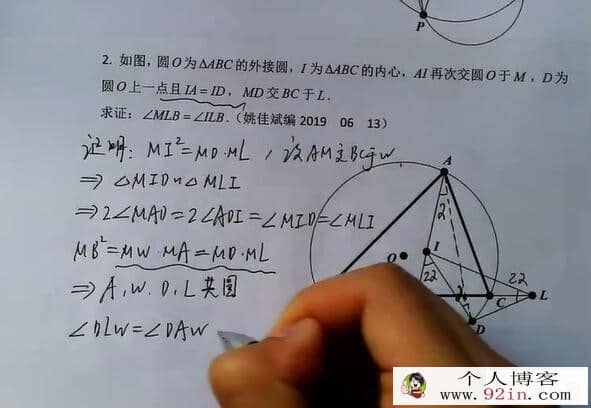 P
2. 如图,圆O为△ABC的外接圆,I为△ABC的内心,AI再次交圆O于M,D为
圆O上一点且IA=ID, MD交BC于L.
求证:∠MLB=∠ILB.(姚佳斌编 2019 06 13)
证明: MI²=MD·ML , 设AM交BC于W
⇒ △MID∽△MLI
⇒ 2∠MAD=2∠ADI=∠MID=∠MLI
MB²=MW·MA=MD·ML
⇒ A,W,D,L共圆
∠DLW=∠DAW
A
2
I
O
22
C
22
L
D
个人博客
www.92in.com